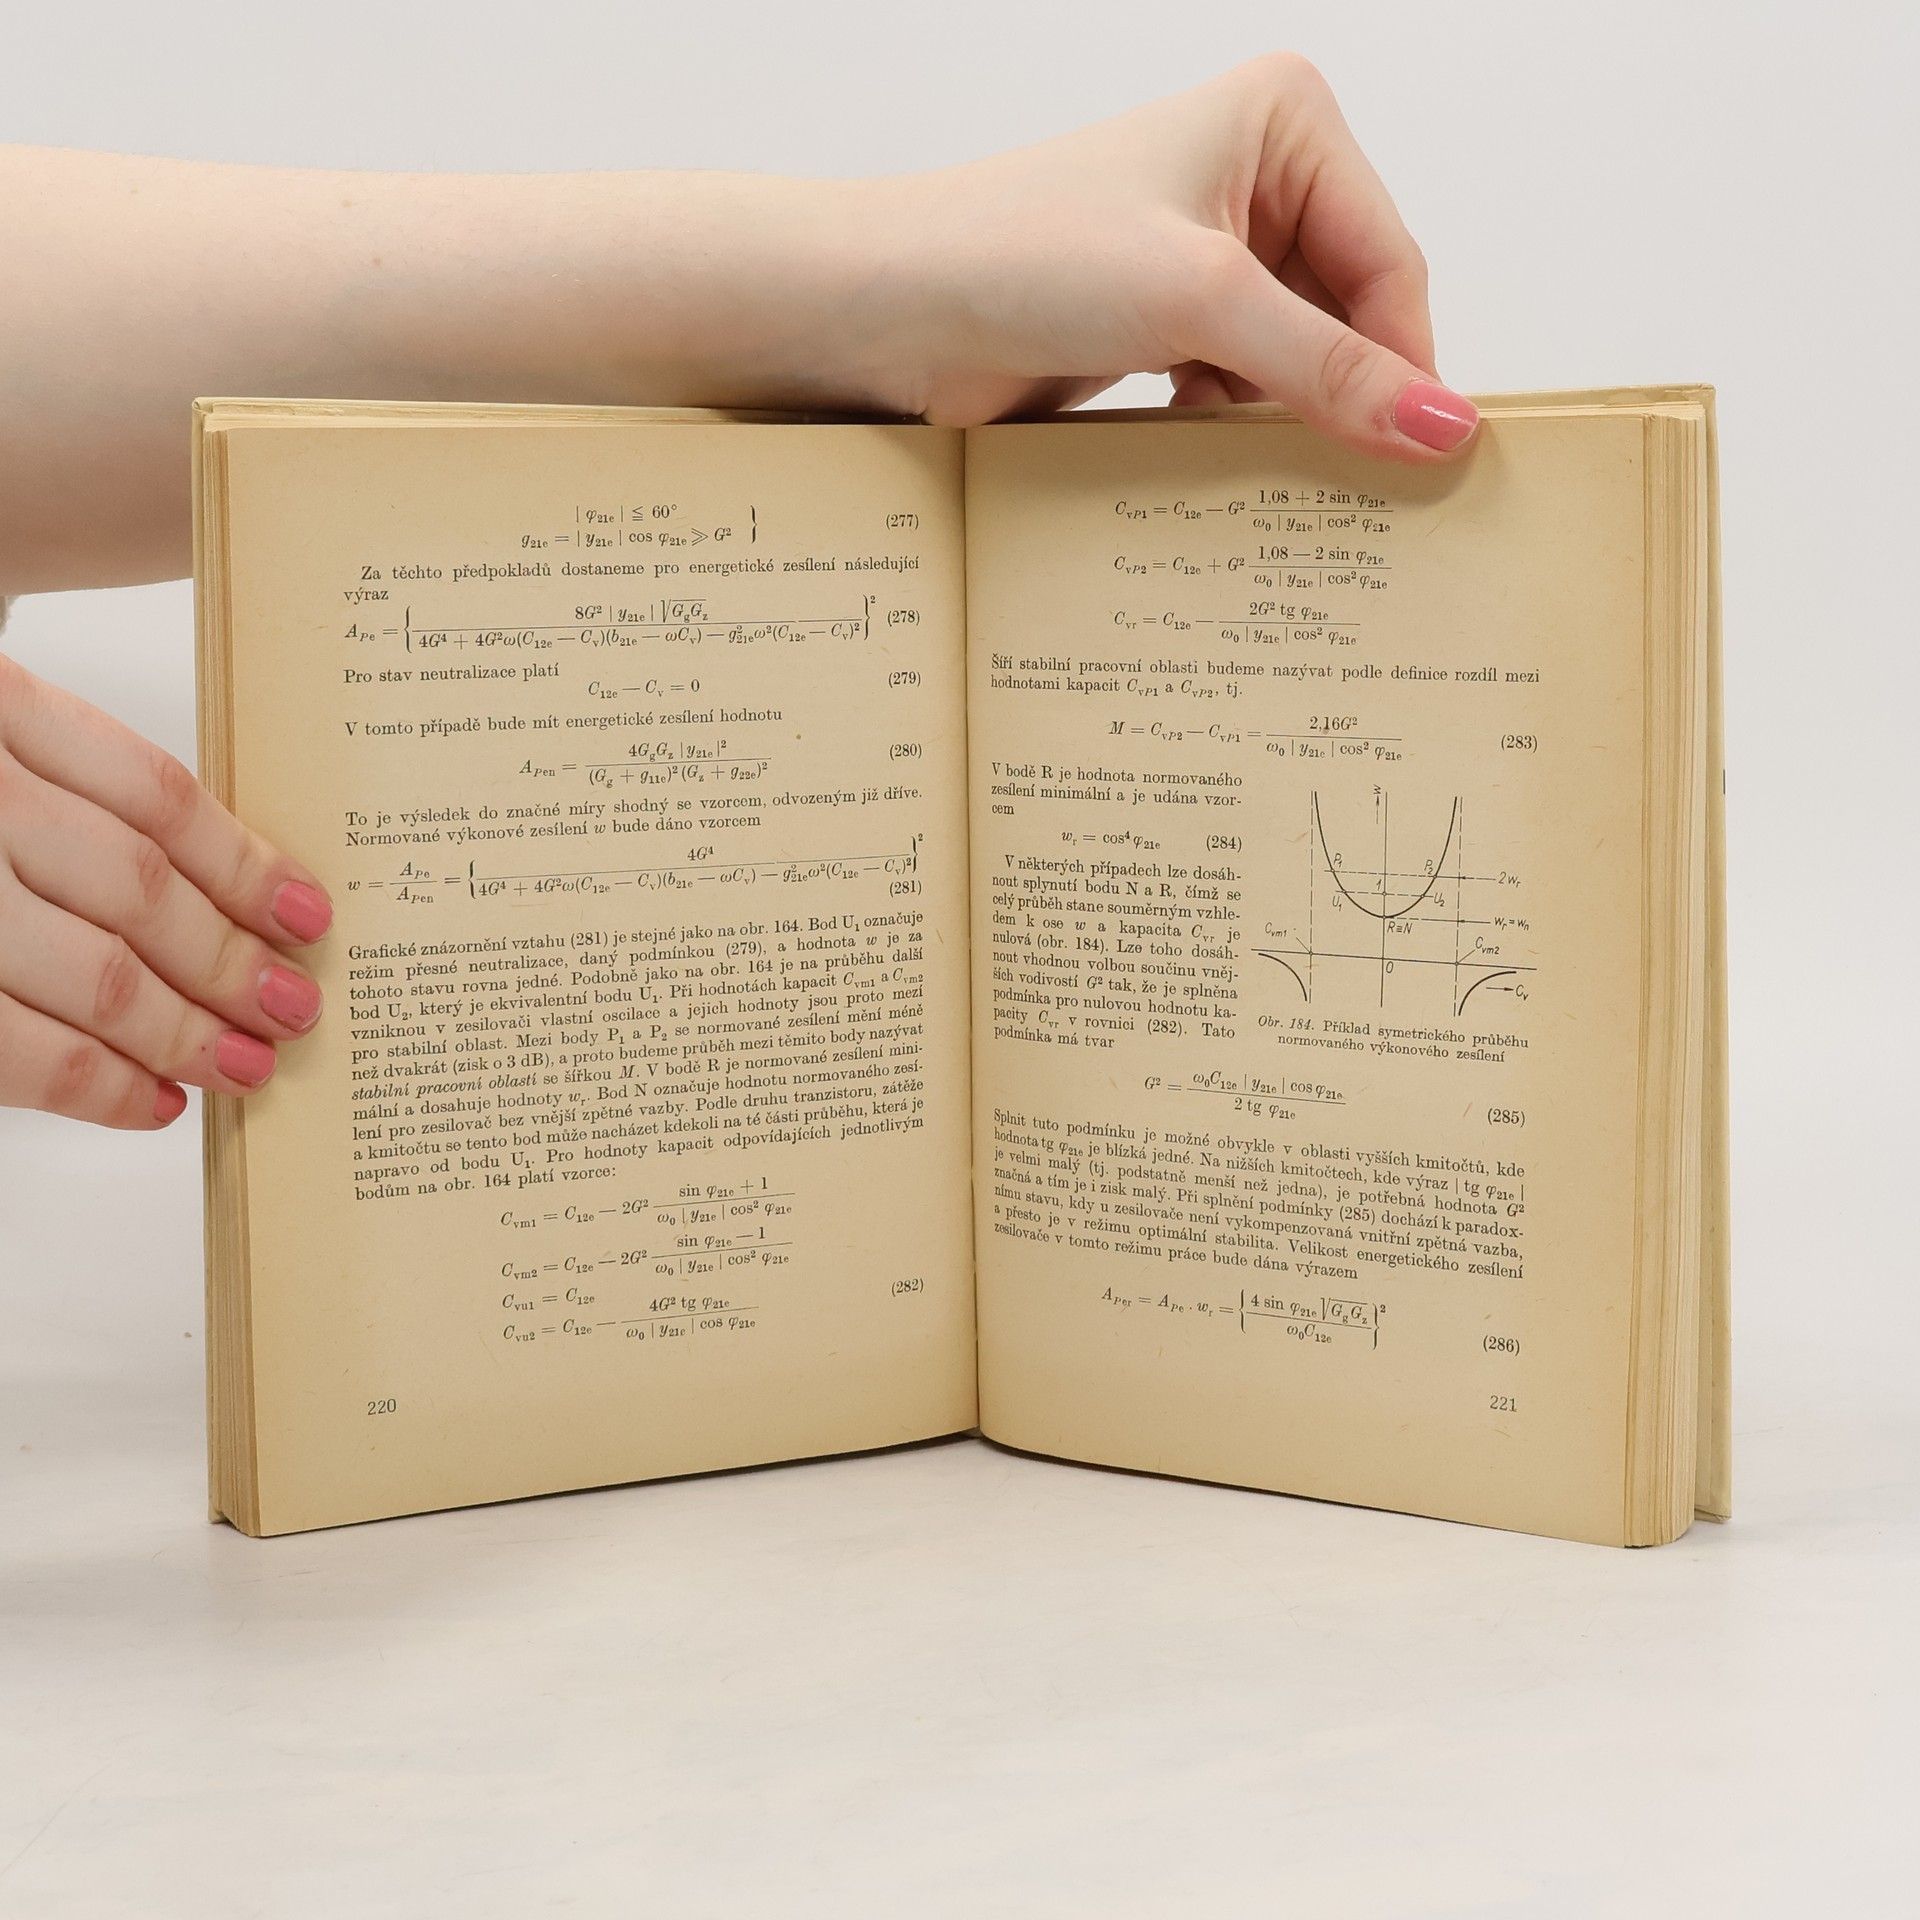 | φ21e | ≦ 60°
g21e = | y21e | cos φ21e ≫ G² } (277)
Za těchto předpokladů dostaneme pro energetické zesílení následující
výraz
APe = { 8G² | y21e | √GgGz / 4G⁴ + 4G²ω(C12e — Cv)(b21e — ωCv) — g²21eω²(C12e — Cv)² }² (278)
Pro stav neutralizace platí
C12e — Cv = 0 (279)
V tomto případě bude mít energetické zesílení hodnotu
APen = 4GgGz | y21e |² / (Gg + g11e)² (Gz + g22e)² (280)
To je výsledek do značné míry shodný se vzorcem, odvozeným již dříve.
Normované výkonové zesílení w bude dáno vzorcem
w = APe / APen = { 4G⁴ / 4G⁴ + 4G²ω(C12e — Cv)(b21e — ωCv) — g²21eω²(C12e — Cv)² }²
(281)
Grafické znázornění vztahu (281) je stejné jako na obr. 164. Bod U1 označuje
režim přesné neutralizace, daný podmínkou (279), a hodnota w je za
tohoto stavu rovna jedné. Podobně jako na obr. 164 je na průběhu další
bod U2, který je ekvivalentní bodu U1. Při hodnotách kapacit Cvm1 a Cvm2
vzniknou v zesilovači vlastní oscilace a jejich hodnoty jsou proto mezí
pro stabilní oblast. Mezi body P1 a P2 se normované zesílení mění méně
než dvakrát (zisk o 3 dB), a proto budeme průběh mezi těmito body nazývat
stabilní pracovní oblastí se šířkou M. V bodě R je normované zesílení mini-
mální a dosahuje hodnoty wr. Bod N označuje hodnotu normovaného zesí-
lení pro zesilovač bez vnější zpětné vazby. Podle druhu tranzistoru, zátěže
a kmitočtu se tento bod může nacházet kdekoli na té části průběhu, která je
napravo od bodu U1. Pro hodnoty kapacit odpovídajících jednotlivým
bodům na obr. 164 platí vzorce:
Cvm1 = C12e — 2G² sin φ21e + 1 / ω0 | y21e | cos² φ21e
Cvm2 = C12e — 2G² sin φ21e — 1 / ω0 | y21e | cos² φ21e
Cvu1 = C12e (282)
Cvu2 = C12e — 4G² tg φ21e / ω0 | y21e | cos φ21e
220
CvP1 = C12e — G² 1,08 + 2 sin φ21e / ω0 | y21e | cos² φ21e
CvP2 = C12e + G² 1,08 — 2 sin φ21e / ω0 | y21e | cos² φ21e
Cvr = C12e — 2G² tg φ21e / ω0 | y21e | cos² φ21e
Šíří stabilní pracovní oblasti budeme nazývat podle definice rozdíl mezi
hodnotami kapacit CvP1 a CvP2, tj.
M = CvP2 — CvP1 = 2,16G² / ω0 | y21e | cos² φ21e (283)
V bodě R je hodnota normovaného
zesílení minimální a je udána vzor-
cem
wr = cos⁴ φ21e (284)
V některých případech lze dosáh-
nout splynutí bodu N a R, čímž se
celý průběh stane souměrným vzhle-
dem k ose w a kapacita Cvr je
nulová (obr. 184). Lze toho dosáh-
nout vhodnou volbou součinu vněj-
ších vodivostí G² tak, že je splněna
podmínka pro nulovou hodnotu ka-
pacity Cvr v rovnici (282). Tato
podmínka má tvar
w
P1
P2
2wr
1
U1
U2
R≡N
wr = wn
Cvm1
Cvm2
0
Cv
Obr. 184. Příklad symetrického průběhu
normovaného výkonového zesílení
G² = ω0C12e | y21e | cos φ21e / 2 tg φ21e (285)
Splnit tuto podmínku je možné obvykle v oblasti vyšších kmitočtů, kde
hodnota tg φ21e je blízká jedné. Na nižších kmitočtech, kde výraz | tg φ21e |
je velmi malý (tj. podstatně menší než jedna), je potřebná hodnota G²
značná a tím je i zisk malý. Při splnění podmínky (285) dochází k paradox-
nímu stavu, kdy u zesilovače není vykompenzovaná vnitřní zpětná vazba,
a přesto je v režimu optimální stabilita. Velikost energetického zesílení
zesilovače v tomto režimu práce bude dána výrazem
APer = APe . wr = { 4 sin φ21e √GgGz / ω0C12e }² (286)
221